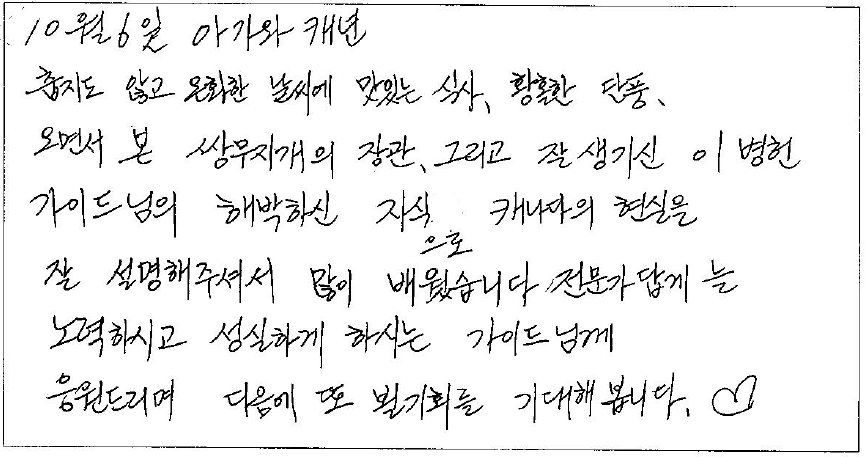 10월 6일 아가와 캐년
춥지도 않고 온화한 날씨에 맛있는 식사, 황홀한 단풍,
오면서 본 쌍무지개의 장관, 그리고 잘생기신 이병헌
가이드님의 해박하신 지식으로 캐나다의 현실을
잘 설명해주셔서 많이 배웠습니다. 전문가답게 늘
노력하시고 성실하게 하시는 가이드님께
응원드리며 다음에 또 뵐기회를 기대해 봅니다. ♡